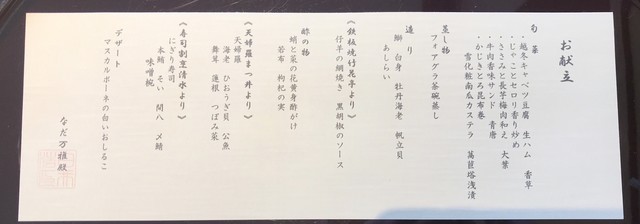 お献立
旬菜
・越冬キャベツ豆腐 生ハム 香草
・じゃことセロリ香り炒め
・ささみと長芋梅肉和え 大葉
・牛肉香味サンド 青唐
・かじきとろ昆布巻
雪化粧南瓜カステラ 萵苣塔浅漬
蒸し物
フォアグラ茶碗蒸し
造り
鰤 白身 牡丹海老 帆立貝
あしらい
《鉄板焼竹花亭より》
仔羊の網焼き 黒胡椒のソース
酢の物
蛸と菜の花黄身酢がけ
若布 枸杞の実
《天婦羅まつ井より》
天婦羅
海老 ひおうぎ貝 公魚
舞茸 蓮根 つぼみ菜
《寿司割烹清水より》
にぎり寿司
本鮪 そい 間八 〆鯖
味噌椀
デザート
マスカルポーネの白いおしるこ
なだ万雅殿